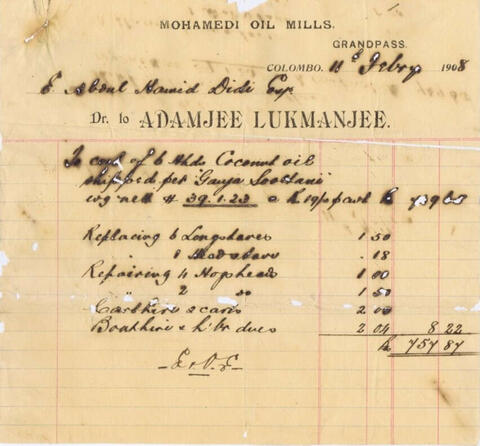 MOHAMEDI OIL MILLS.
GRANDPASS.
COLOMBO, 11th Febry 1908
E Abdul Hamid Didi Esq
Dr. to ADAMJEE LUKMANJEE.
To cost of 6 Hhds Coconut oil
shipped per "Ganja Soostani"
wg nett # 39.1.23 @ R 19
Replacing 6 Longstaves 1 50
" 1 .18
Repairing 4 Hogsheads 1 00
" 2 1 50
Carthire & cans 2 00
Boathire & dues 2 04 8 22
R 757 87
E & O.E